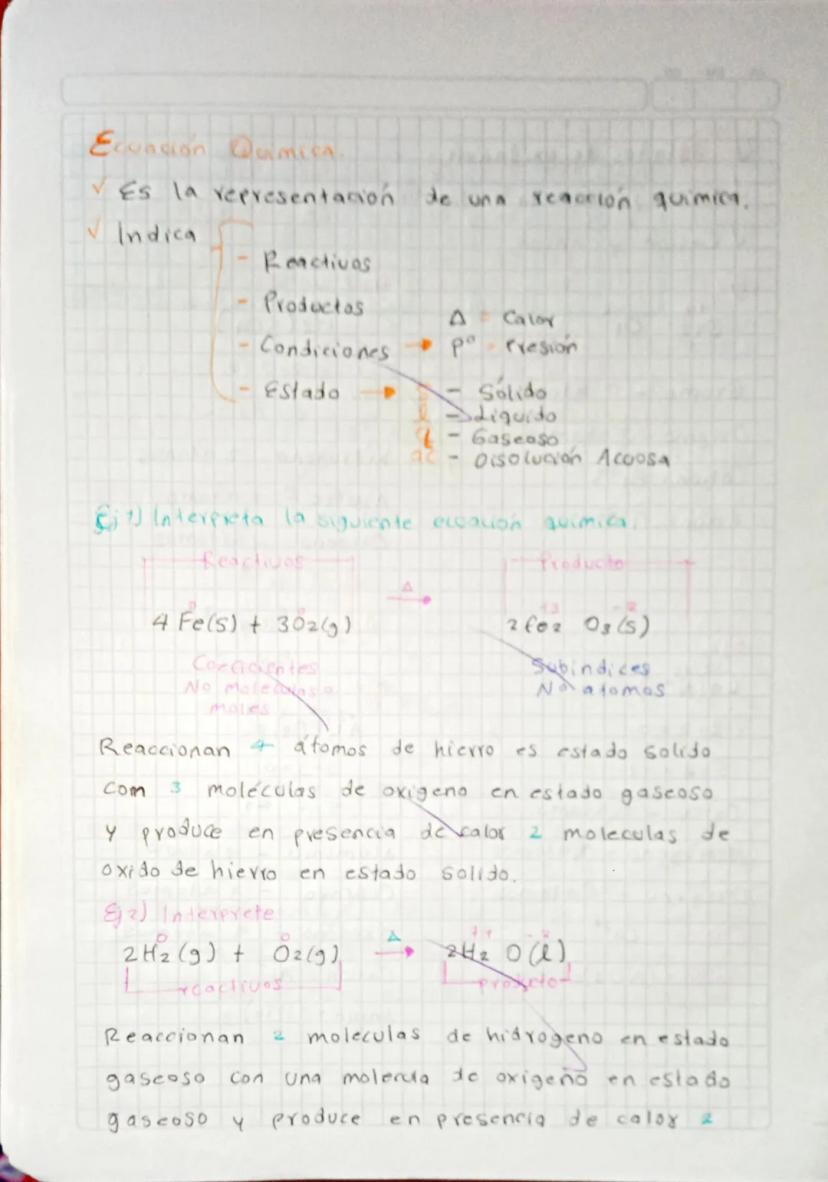 Ecuación Quimica.
✓ Es la representación de una reacción quimica.
✓ Indica
- Reactivos
- Productos
Δ = Calor
- Condiciones → Pº = Presión
- Estado → s - Sólido
l - Liquido
g - Gaseoso
ac - Disolución Acuosa
Ej 1) Interpreta la siguiente ecuación quimica.
Reactivos Producto
Δ
0 0 +3 -2
4 Fe(s) + 3O2(g) → 2Fe2 O3(s)
Coeficientes Subindices
No moleculas o No atomos
moles
Reaccionan 4 átomos de hierro es estado solido
com 3 moléculas de oxigeno en estado gaseoso
y produce en presencia de calor 2 moleculas de
oxido de hierro en estado solido.
Ej 2) Interprete
0 0 Δ
2H2(g) + O2(g) → 2H2 O(l)
reactivos producto
Reaccionan 2 moleculas de hidrogeno en estado
gaseoso con una molecula de oxigeno en estado
gaseoso y produce en presencia de calor 2